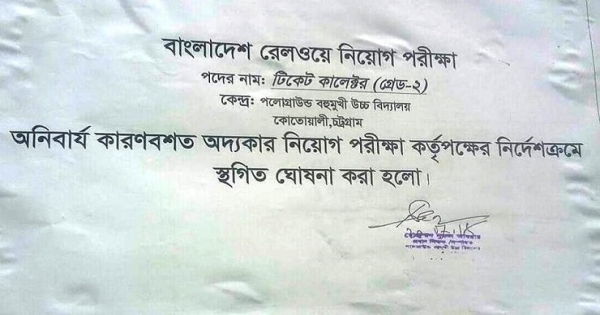 বাংলাদেশ রেলওয়ে নিয়োগ পরীক্ষা
পদের নাম: টিকেট কালেক্টর (গ্রেড-২)
কেন্দ্র: পলোগ্রাউন্ড বহুমুখী উচ্চ বিদ্যালয়
কোতোয়ালী,চট্টগ্রাম
অনিবার্য কারণবশত অদ্যকার নিয়োগ পরীক্ষা কর্তৃপক্ষের নির্দেশক্রমে
স্থগিত ঘোষনা করা হলো।